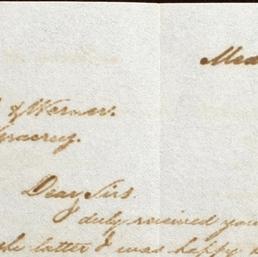 Mea
& Werner.
Veracruz.
Dear Sirs
I duly received you
the latter I was happy